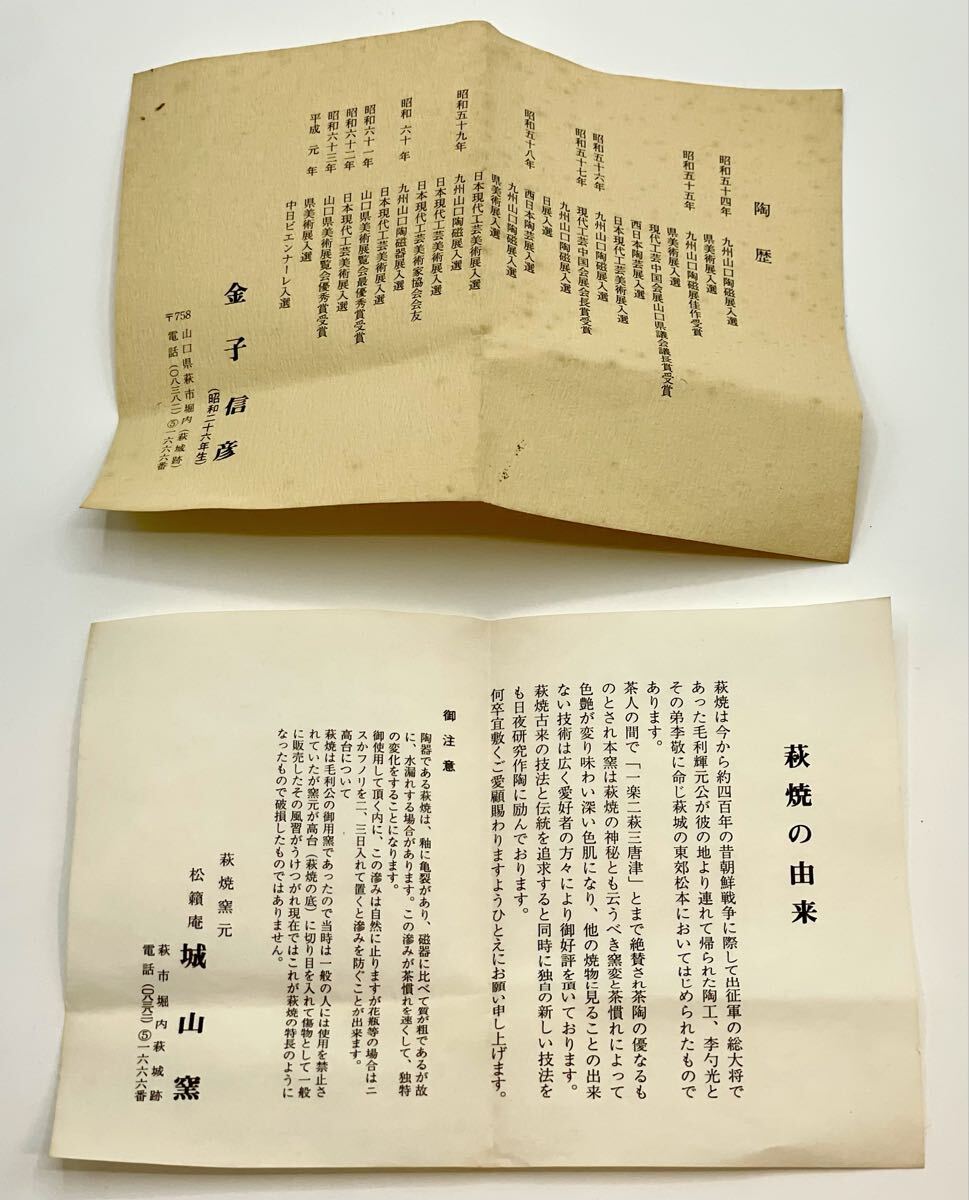 陶歴
昭和五十四年 九州山口陶磁展入選
県美術展入選
昭和五十五年 九州山口陶磁展佳作受賞
県美術展入選
現代工芸中国会展山口県議会議長賞受賞
西日本陶芸展入選
日本現代工芸美術展入選
昭和五十六年 九州山口陶磁展入選
昭和五十七年 現代工芸中国会展会長賞受賞
九州山口陶磁展入選
日展入選
昭和五十八年 西日本陶芸展入選
九州山口陶磁展入選
県美術展入選
昭和五十九年 日本現代工芸美術展入選
九州山口陶磁展入選
日本現代工芸美術展入選
日本現代工芸美術家協会会友
昭和六十年 九州山口陶磁器展入選
日本現代工芸美術展入選
昭和六十一年 山口県美術展覧会最優秀賞受賞
昭和六十二年 日本現代工芸美術展入選
昭和六十三年 山口県美術展覧会優秀賞受賞
平成元年 県美術展入選
中日ビエンナーレ入選
金子信彦
(昭和二十六年生)
〒758 山口県萩市堀内(萩城跡)
電話(〇八三八二)⑤一六六六番
萩焼の由来
萩焼は今から約四百年の昔朝鮮戦争に際して出征軍の総大将で
あった毛利輝元公が彼の地より連れて帰られた陶工、李勺光と
その弟李敬に命じ萩城の東郊松本においてはじめられたもので
あります。
茶人の間で「一楽二萩三唐津」とまで絶賛され茶陶の優なるも
のとされ本窯は萩焼の神秘とも云うべき窯変と茶慣れによって
色艶が変り味わい深い色肌になり、他の焼物に見ることの出来
ない技術は広く愛好者の方々により御好評を頂いております。
萩焼古来の技法と伝統を追求すると同時に独自の新しい技法を
も日夜研究作陶に励んでおります。
何卒宜敷くご愛顧賜わりますようひとえにお願い申し上げます。
御注意
陶器である萩焼は、釉に亀裂があり、磁器に比べて質が粗であるが故
に、水漏れする場合があります。この滲みが茶慣れを速くして、独特
の変化をすることになります。
御使用して頂く内に、この滲みは自然に止りますが花瓶等の場合はニ
スかフノリを二、三日入れて置くと滲みを防ぐことが出来ます。
高台について
萩焼は毛利公の御用窯であったので当時は一般の人には使用を禁止さ
れていたが窯元が高台(萩焼の底)に切り目を入れて傷物として一般
に販売したその風習がうけつがれ現在ではこれが萩焼の特長のように
なったもので破損したものではありません。
萩焼窯元
松籟庵 城山窯
萩市堀内萩城跡
電話(〇八三八二)⑤一六六六番